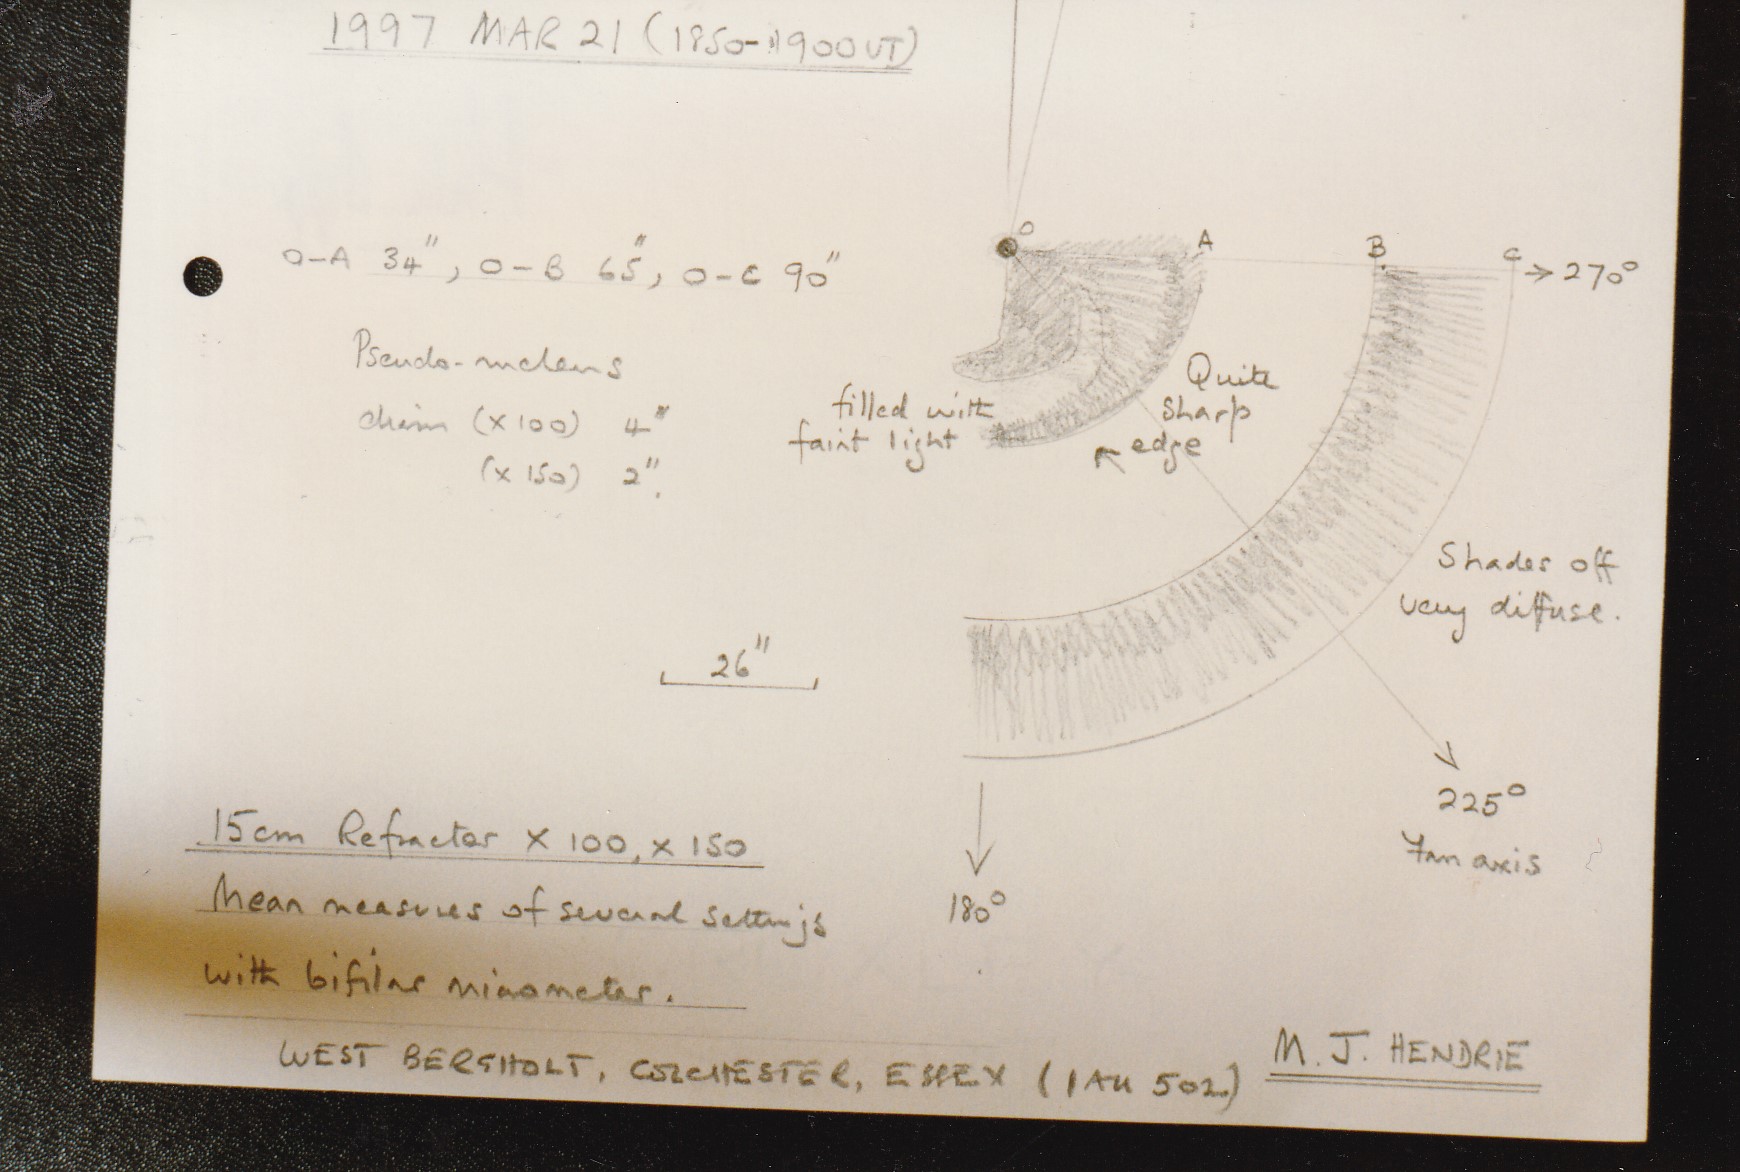 1997 MAR 21 (1850-1900 UT)
O
A
B
C
→ 270°
O-A 34", O-B 65", O-C 90"
Pseudo-nucleus
diam (x100) 4"
(x150) 2".
Quite
sharp
edge
filled with
faint light
Shades off
very diffuse.
26"
225°
Fan axis
180°
15cm Refractor x 100, x 150
Mean measures of several settings
with bifilar micrometer.
WEST BERGHOLT, COLCHESTER, ESSEX (IAU 502)
M. J. HENDRIE